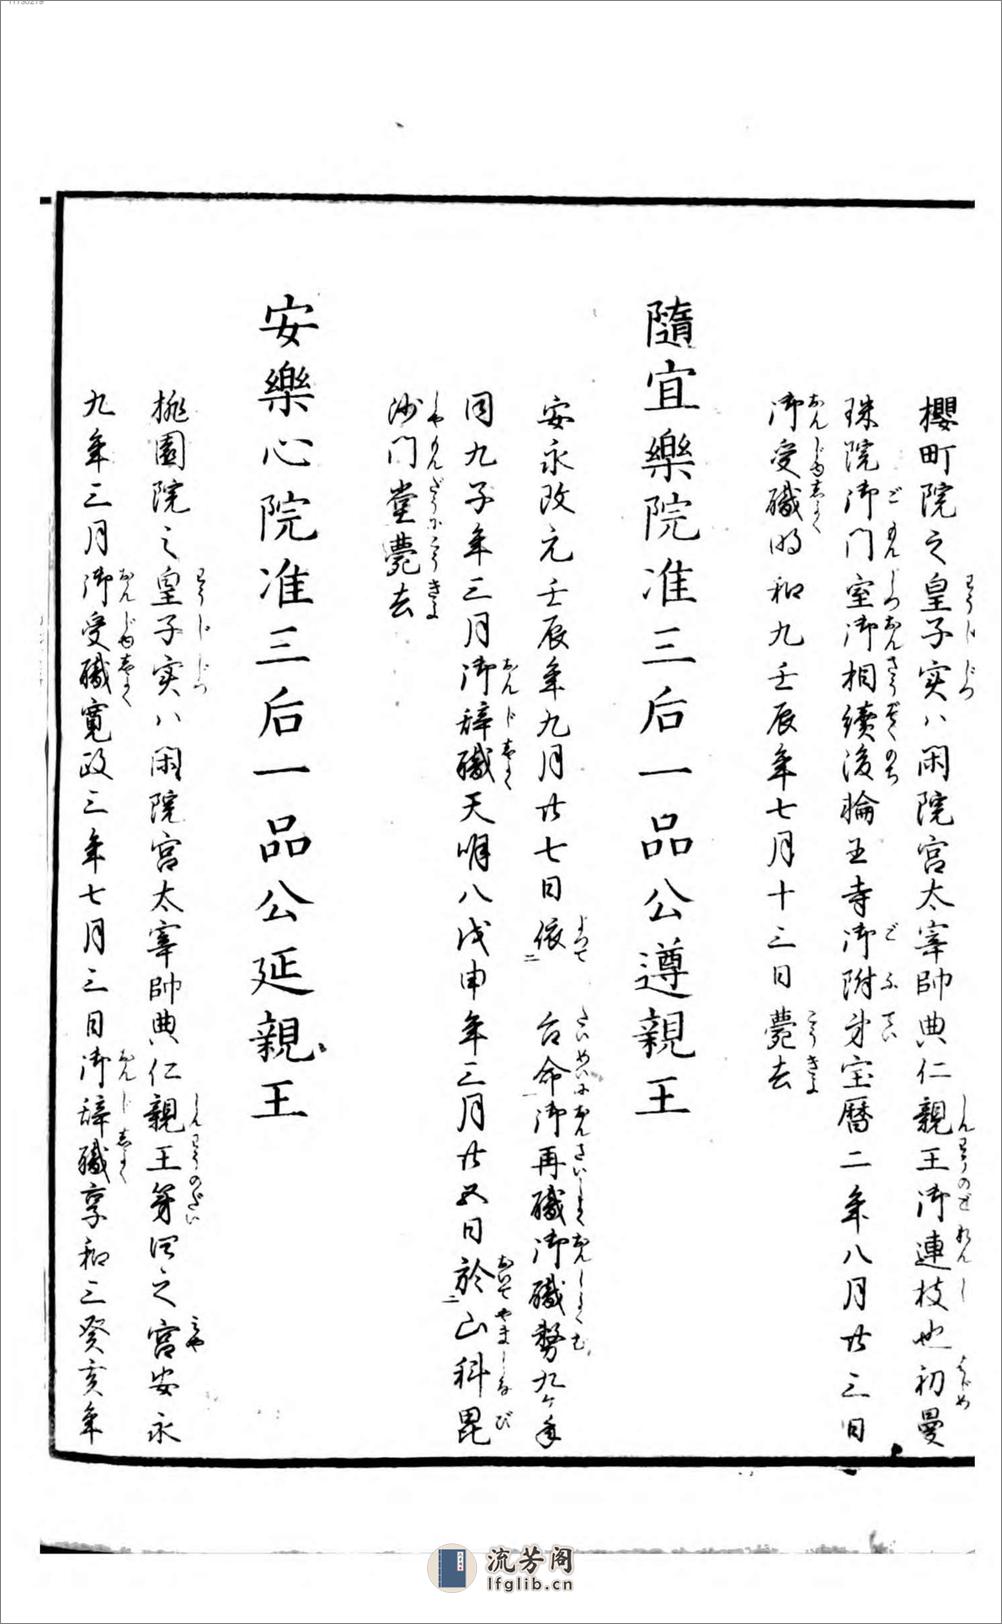 櫻町院之皇子実ハ閑院宮太宰帥典仁親王御連枝也初曼
珠院御门室御相續後輪王寺御附弟宝暦二年八月廿三日
御受職明和九壬辰年七月十三日薨去
隨宜樂院准三后一品公遵親王
安永改元壬辰年九月廿七日依二　台命一御再職御職務九ケ年
同九子年三月御辞職天明八戊申年三月廿五日於二山科毘
沙门堂薨去
安樂心院准三后一品公延親王
桃園院之皇子実ハ閑院宮太宰帥典仁親王第四之宮安永
九年三月御受職寛政三年七月三日御辞職享和三癸亥年
流芳阁
lfglib.cn